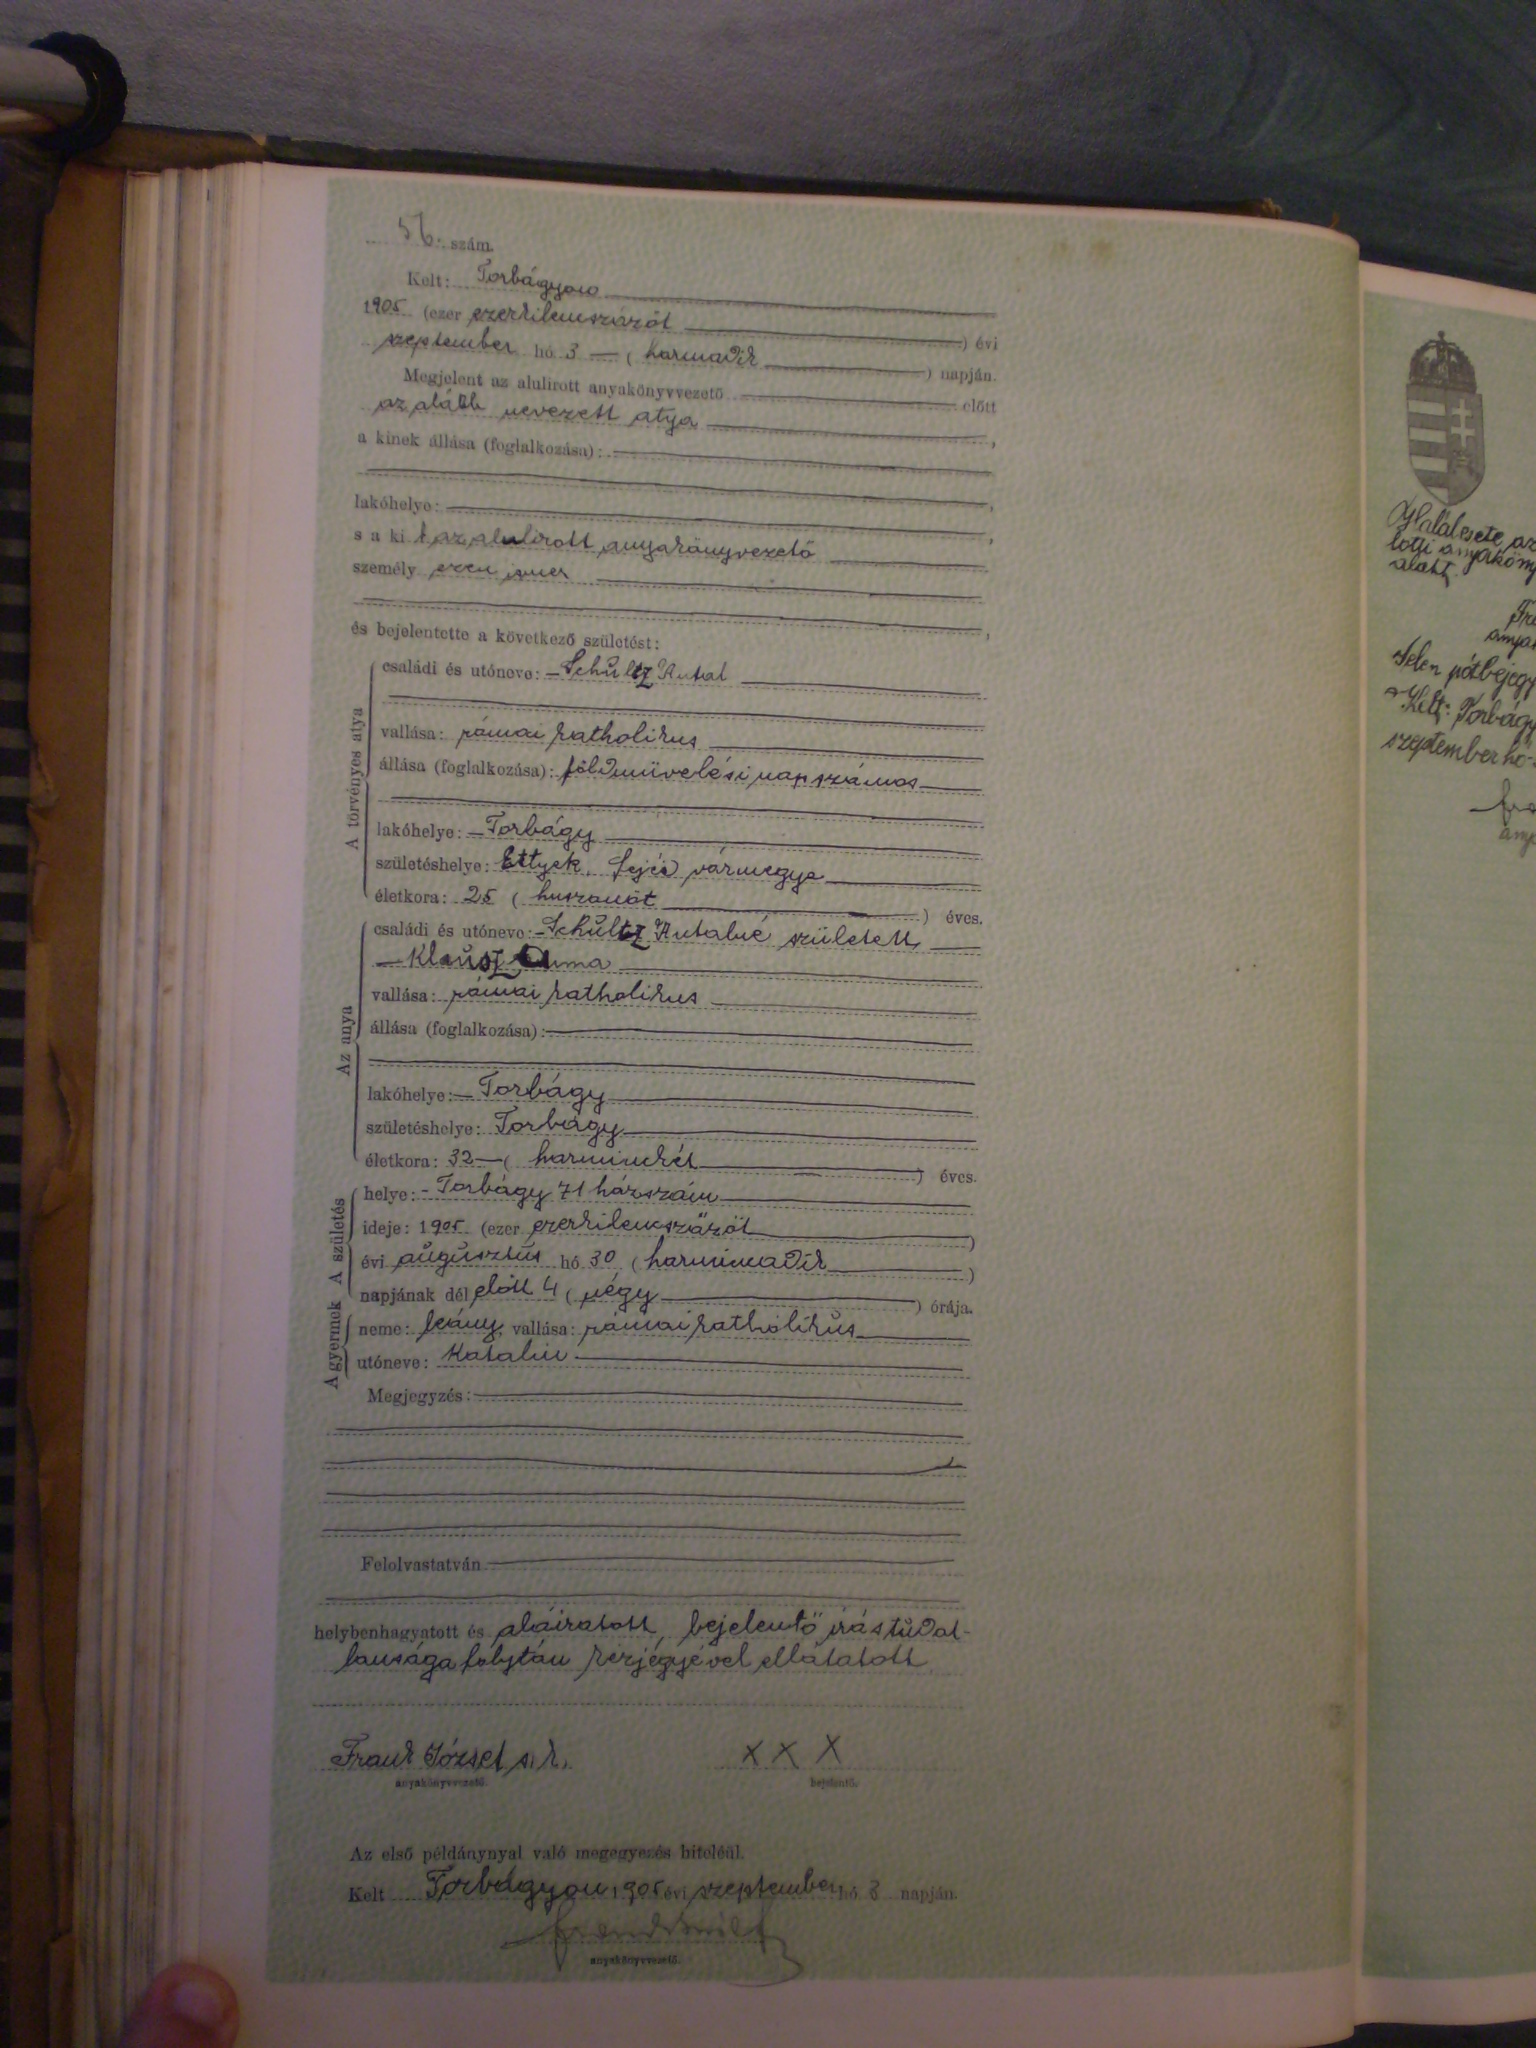 56. szám.
Kelt: Torbágyon
1905 (ezer ezerkilencszázöt) évi
szeptember hó 3 — (harmadik) napján.
Megjelent az alulirott anyakönyvvezető előtt
az alább nevezett atya,
a kinek állása (foglalkozása):
lakóhelye:
s a ki t az alulirott anyakönyvvezető
személy esen ismer
és bejelentette a következő születést:
A törvényes atya
családi és utóneve: Schultz Antal
vallása: római katholikus
állása (foglalkozása): földmüvelési napszámos
lakóhelye: Torbágy
születéshelye: Ettyek, Fejér vármegye
életkora: 25 (huszonöt) éves.
Az anya
családi és utóneve: Schultz Antalné született
Klausz Anna
vallása: római katholikus
állása (foglalkozása):
lakóhelye: Torbágy
születéshelye: Torbágy
életkora: 32 — (harminckét) éves.
A születés
helye: Torbágy 71 házszám
ideje: 1905 (ezer ezerkilencszázöt)
évi augusztus hó 30 (harminczadik)
napjának dél előtt 4 (négy) órája.
A gyermek
neme: leány, vallása: római katholikus
utóneve: Katalin
Megjegyzés:
Felolvastatván
helybenhagyatott és aláiratott, bejelentő irástudat-
lansága folytán kézjegyével ellátatott
Frank József s. k. x x x
anyakönyvvezető. bejelentő.
Az első példánynyal való megegyezés hiteléül.
Kelt Torbágyon 1905 évi szeptember hó 3 napján.
Frank József
anyakönyvvezető.
Halálesete az
lotti anyaköny
alatt.
Fra
anya
Jelen pótbejegy
Kelt: Torbágy
szeptember hó
Fra
anya